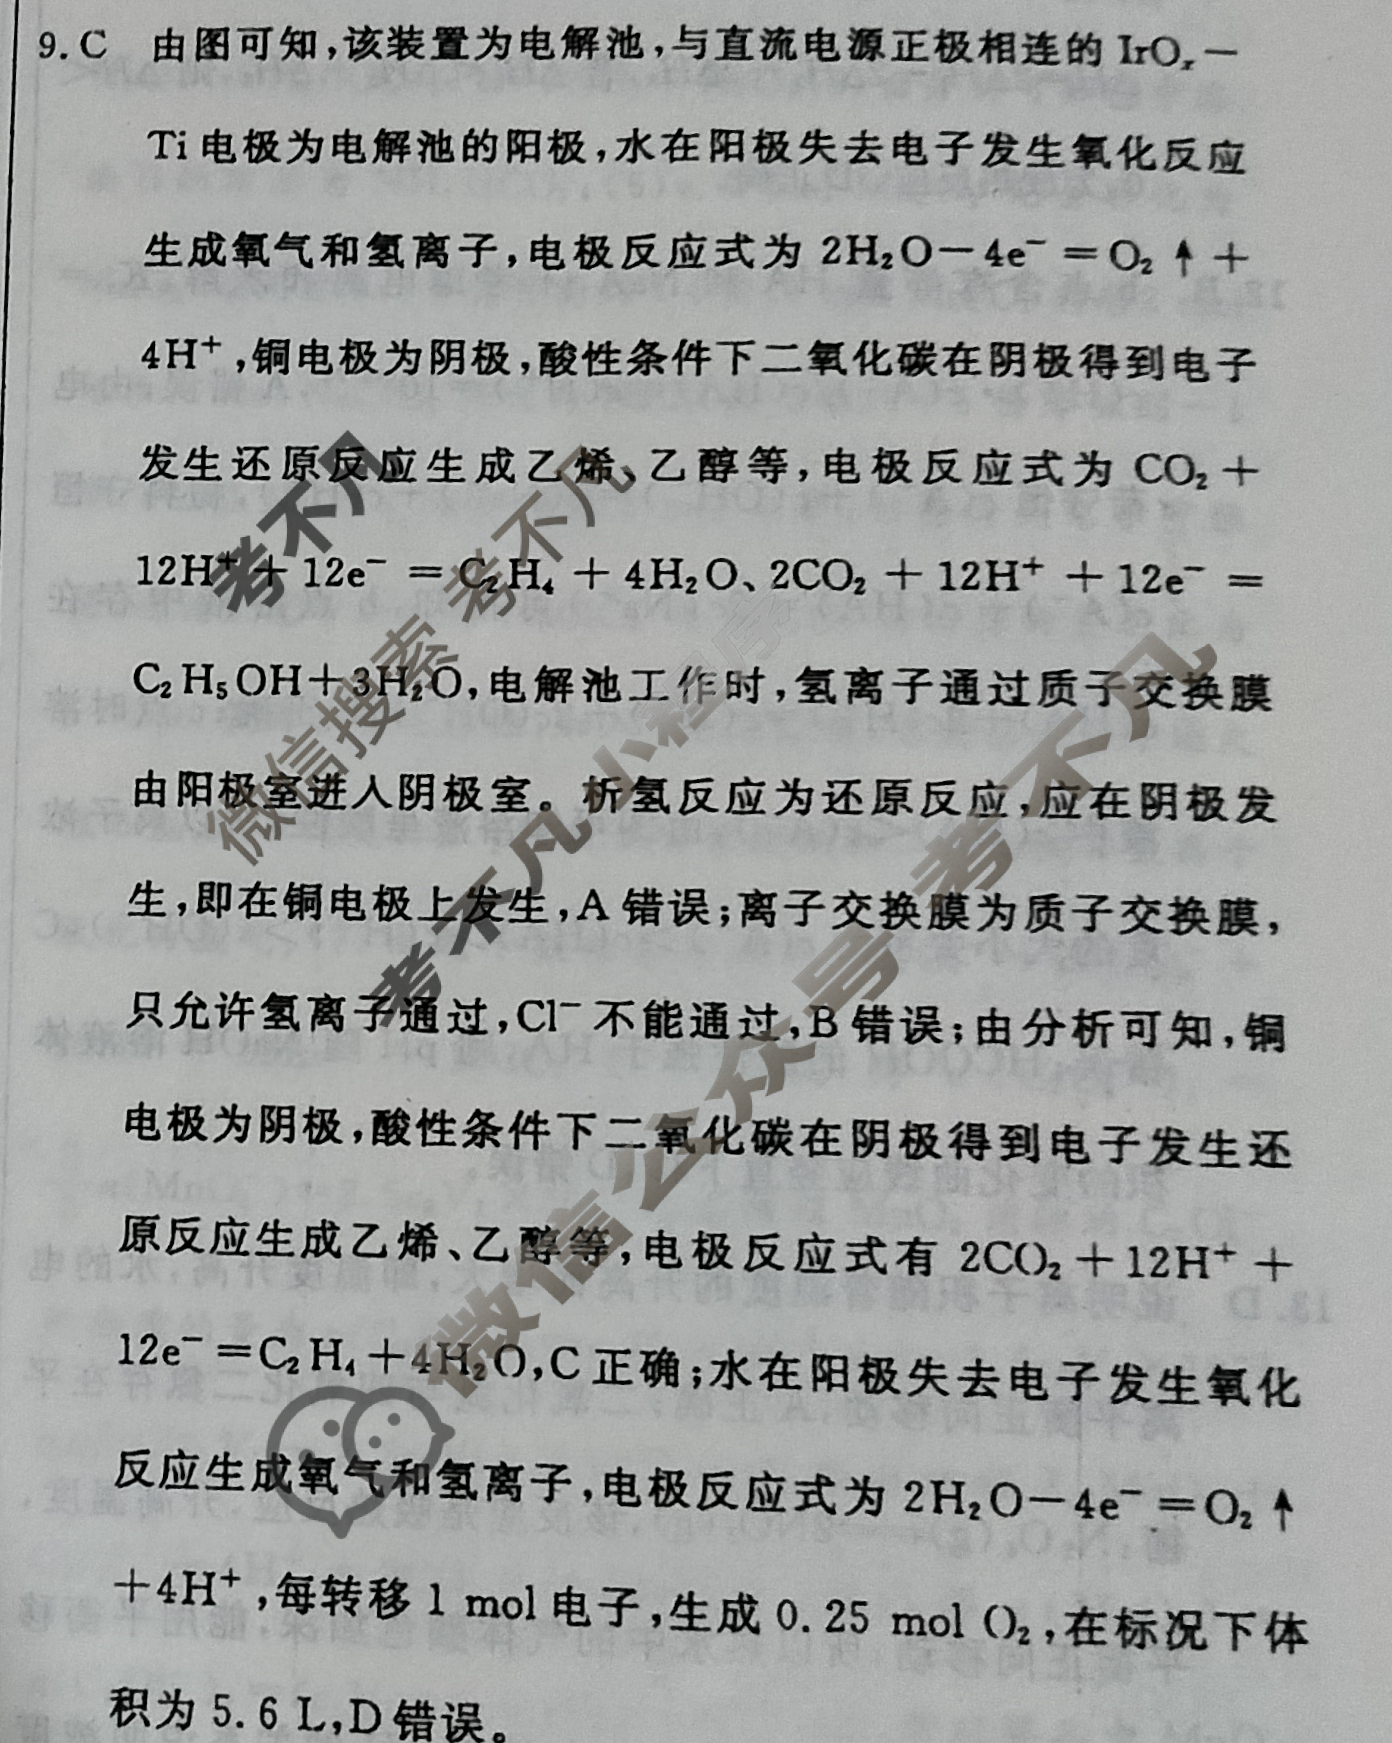 9. C 由图可知,该装置为电解池,与直流电源正极相连的 IrOₓ—
Ti 电极为电解池的阳极,水在阳极失去电子发生氧化反应
生成氧气和氢离子,电极反应式为 2H₂O－4e⁻＝O₂↑＋
4H⁺,铜电极为阴极,酸性条件下二氧化碳在阴极得到电子
发生还原反应生成乙烯、乙醇等,电极反应式为 CO₂＋
12H⁺＋12e⁻＝C₂H₄＋4H₂O、2CO₂＋12H⁺＋12e⁻＝
C₂H₅OH＋3H₂O,电解池工作时,氢离子通过质子交换膜
由阳极室进入阴极室。析氢反应为还原反应,应在阴极发
生,即在铜电极上发生,A 错误;离子交换膜为质子交换膜,
只允许氢离子通过,Cl⁻不能通过,B 错误;由分析可知,铜
电极为阴极,酸性条件下二氧化碳在阴极得到电子发生还
原反应生成乙烯、乙醇等,电极反应式有 2CO₂＋12H⁺＋
12e⁻＝C₂H₄＋4H₂O,C 正确;水在阳极失去电子发生氧化
反应生成氧气和氢离子,电极反应式为 2H₂O－4e⁻＝O₂↑
＋4H⁺,每转移 1 mol 电子,生成 0.25 mol O₂,在标况下体
积为 5.6 L,D 错误。
考不凡
微信搜索 考不凡
考不凡小程序
微信公众号 考不凡